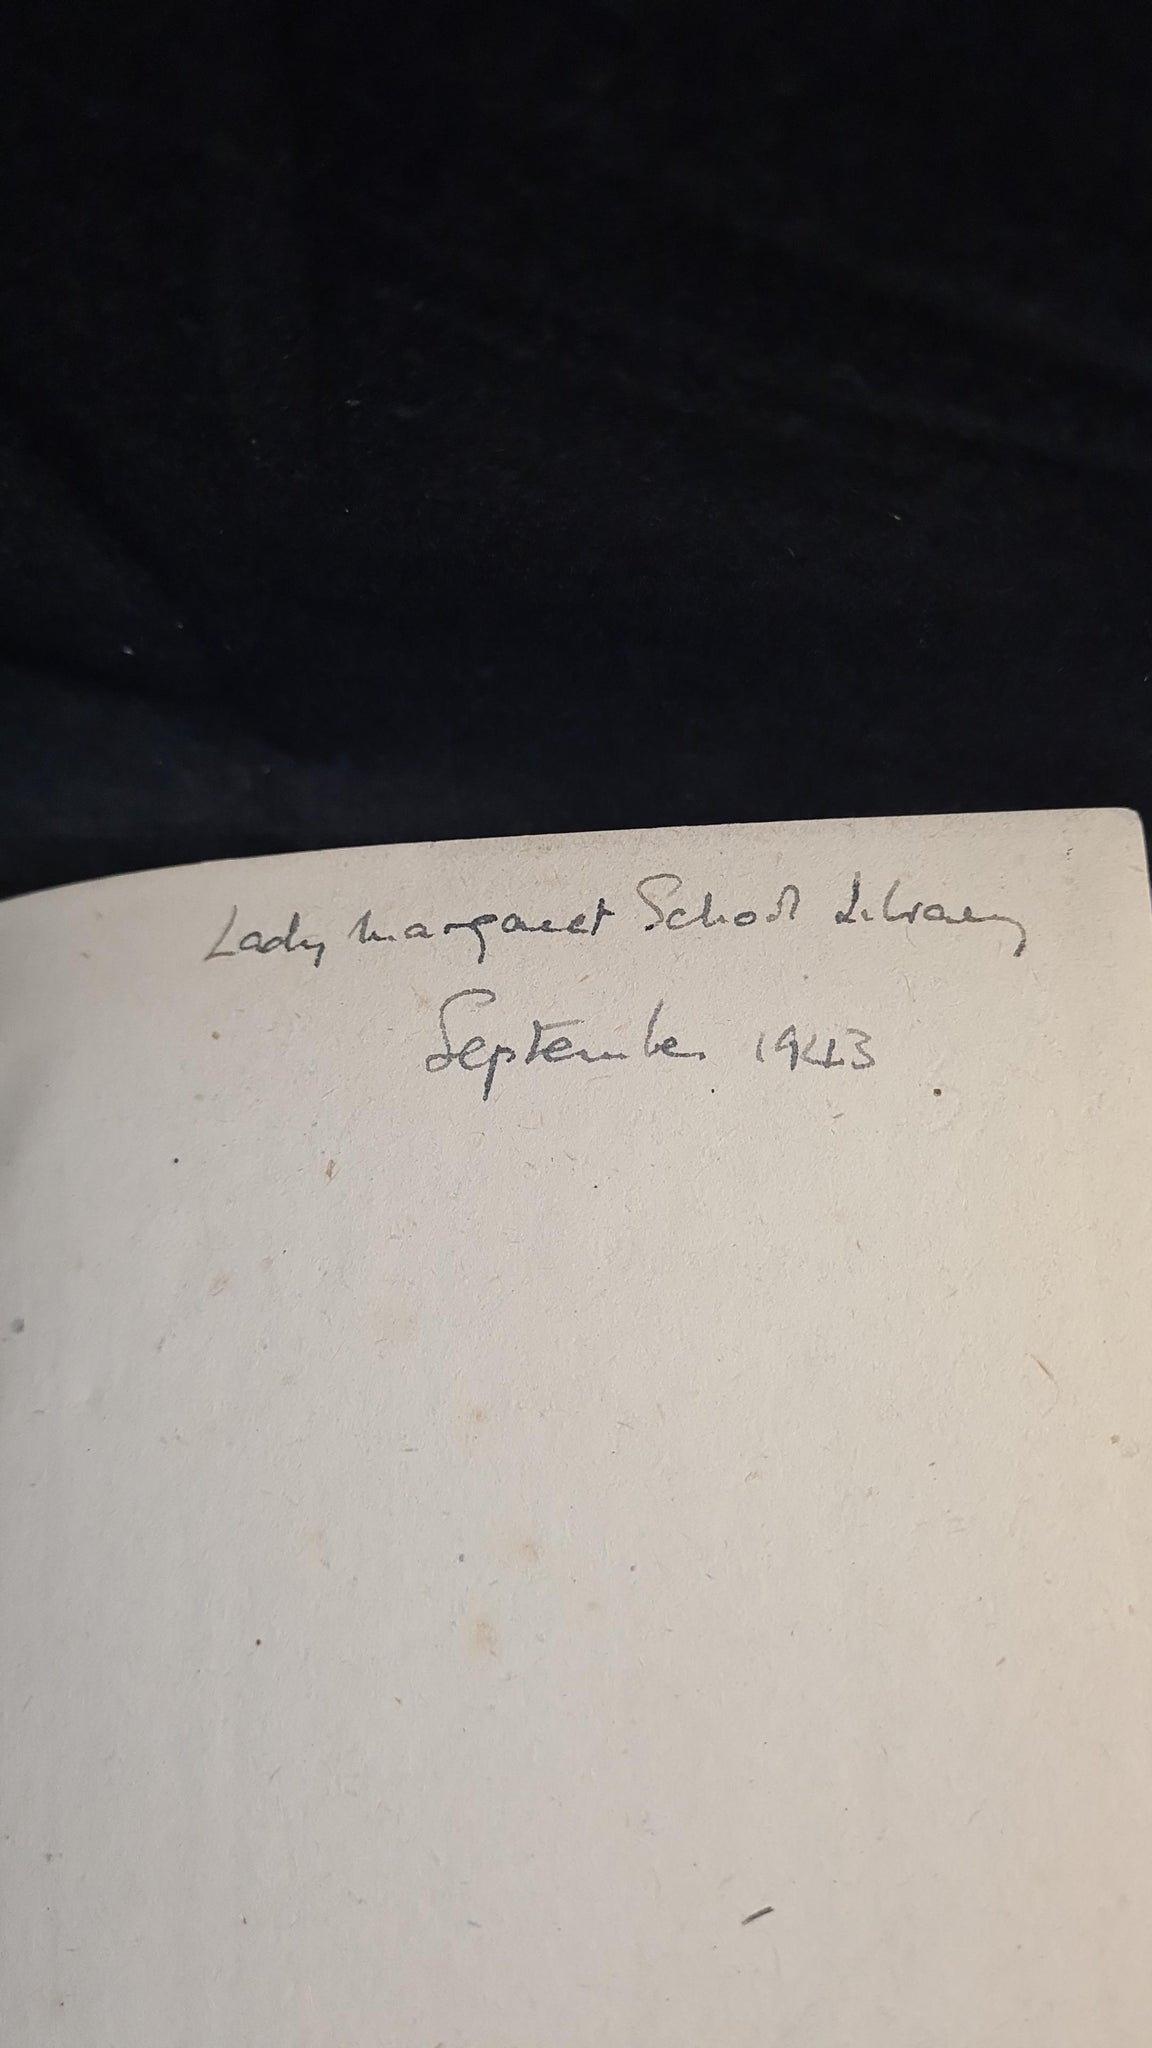 Lady Margaret School Library
September 1943